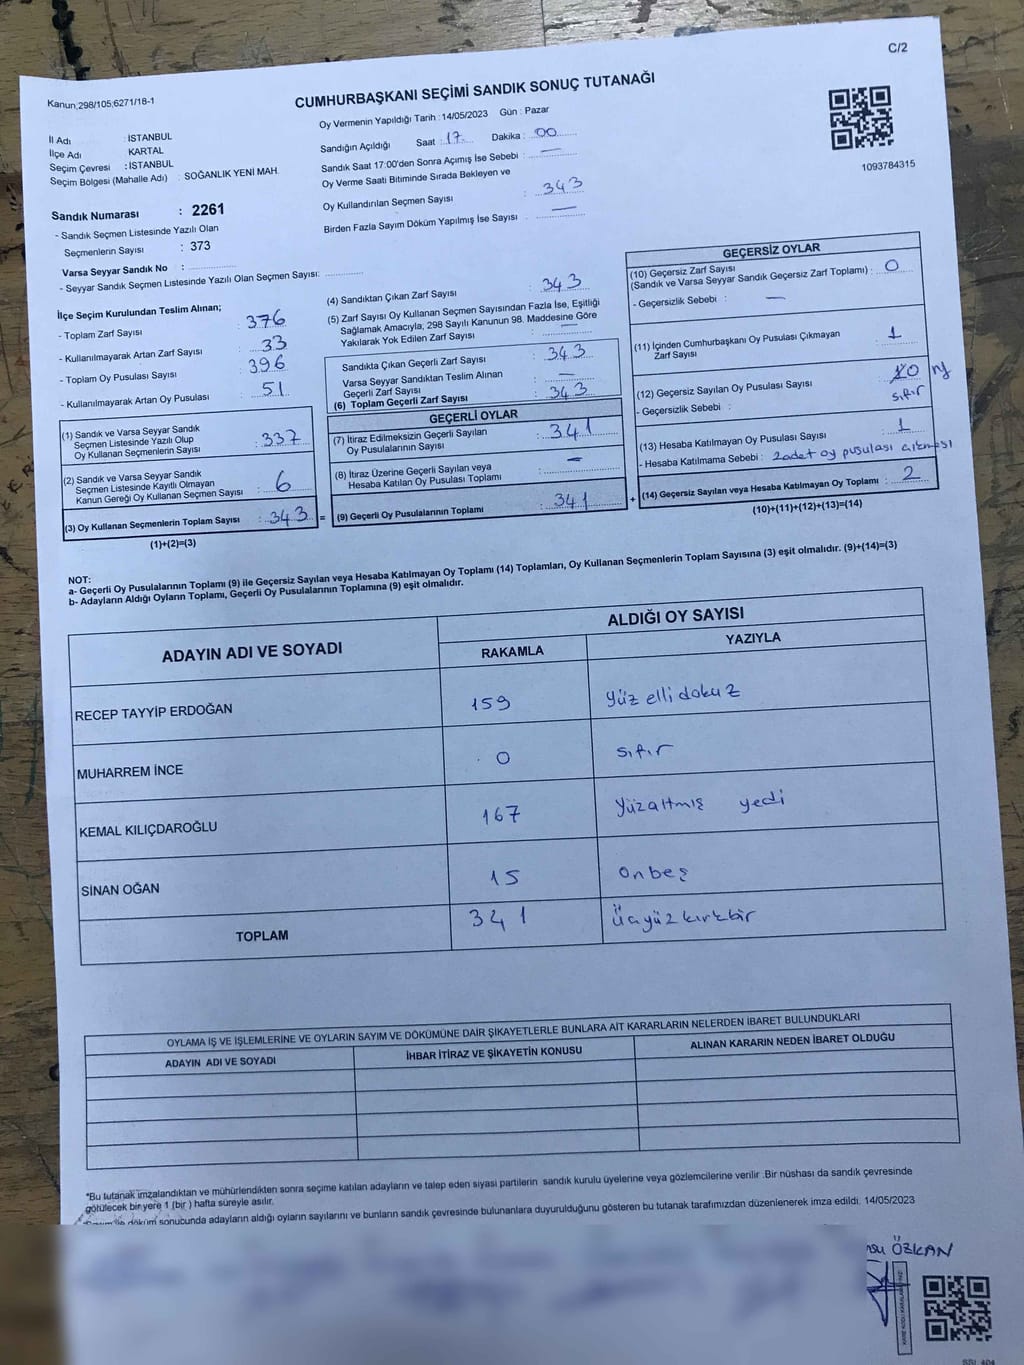 C/2
Kanun,298/105;6271/18-1
CUMHURBAŞKANI SEÇİMİ SANDIK SONUÇ TUTANAĞI
Oy Vermenin Yapıldığı Tarih : 14/05/2023 Gün : Pazar
İl Adı : İSTANBUL
İlçe Adı KARTAL
Seçim Çevresi : İSTANBUL
Seçim Bölgesi (Mahalle Adı) : SOĞANLIK YENİ MAH.
Sandığın Açıldığı Saat : 17 Dakika : 00
Sandık Saat 17:00'den Sonra Açımış İse Sebebi : —
Oy Verme Saati Bitiminde Sırada Bekleyen ve
Oy Kullandırılan Seçmen Sayısı : 343
Birden Fazla Sayım Döküm Yapılmış İse Sayısı : —
1093784315
Sandık Numarası : 2261
- Sandık Seçmen Listesinde Yazılı Olan
Seçmenlerin Sayısı : 373
Varsa Seyyar Sandık No :
- Seyyar Sandık Seçmen Listesinde Yazılı Olan Seçmen Sayısı:
İlçe Seçim Kurulundan Teslim Alınan;
- Toplam Zarf Sayısı : 376
- Kullanılmayarak Artan Zarf Sayısı : 33
- Toplam Oy Pusulası Sayısı : 396
- Kullanılmayarak Artan Oy Pusulası : 51
(1) Sandık ve Varsa Seyyar Sandık
Seçmen Listesinde Yazılı Olup
Oy Kullanan Seçmenlerin Sayısı : 337
(2) Sandık ve Varsa Seyyar Sandık
Seçmen Listesinde Kayıtlı Olmayan
Kanun Gereği Oy Kullanan Seçmen Sayısı : 6
(3) Oy Kullanan Seçmenlerin Toplam Sayısı : 343 =
(1)+(2)=(3)
(4) Sandıktan Çıkan Zarf Sayısı : 343
(5) Zarf Sayısı Oy Kullanan Seçmen Sayısından Fazla İse, Eşitliği
Sağlamak Amacıyla, 298 Sayılı Kanunun 98. Maddesine Göre
Yakılarak Yok Edilen Zarf Sayısı : —
Sandıkta Çıkan Geçerli Zarf Sayısı : 343
Varsa Seyyar Sandıktan Teslim Alınan
Geçerli Zarf Sayısı : —
(6) Toplam Geçerli Zarf Sayısı : 343
GEÇERLİ OYLAR
(7) İtiraz Edilmeksizin Geçerli Sayılan
Oy Pusulalarının Sayısı : 341
(8) İtiraz Üzerine Geçerli Sayılan veya
Hesaba Katılan Oy Pusulası Toplamı : —
(9) Geçerli Oy Pusulalarının Toplamı : 341 +
GEÇERSİZ OYLAR
(10) Geçersiz Zarf Sayısı
(Sandık ve Varsa Seyyar Sandık Geçersiz Zarf Toplamı) : 0
- Geçersizlik Sebebi : —
(11) İçinden Cumhurbaşkanı Oy Pusulası Çıkmayan
Zarf Sayısı : 1
(12) Geçersiz Sayılan Oy Pusulası Sayısı 0
sıfır
- Geçersizlik Sebebi :
(13) Hesaba Katılmayan Oy Pusulası Sayısı : 1
- Hesaba Katılmama Sebebi : 2 adet oy pusulası çıkması
(14) Geçersiz Sayılan veya Hesaba Katılmayan Oy Toplamı : 2
(10)+(11)+(12)+(13)=(14)
NOT:
a- Geçerli Oy Pusulalarının Toplamı (9) ile Geçersiz Sayılan veya Hesaba Katılmayan Oy Toplamı (14) Toplamları, Oy Kullanan Seçmenlerin Toplam Sayısına (3) eşit olmalıdır. (9)+(14)=(3)
b- Adayların Aldığı Oyların Toplamı, Geçerli Oy Pusulalarının Toplamına (9) eşit olmalıdır.
ADAYIN ADI VE SOYADI ALDIĞI OY SAYISI
RAKAMLA YAZIYLA
RECEP TAYYİP ERDOĞAN 159 Yüz elli dokuz
MUHARREM İNCE 0 sıfır
KEMAL KILIÇDAROĞLU 167 Yüzaltmış yedi
SİNAN OĞAN 15 onbeş
TOPLAM 341 Üçyüz kırkbir
OYLAMA İŞ VE İŞLEMLERİNE VE OYLARIN SAYIM VE DÖKÜMÜNE DAİR ŞİKAYETLERLE BUNLARA AİT KARARLARIN NELERDEN İBARET BULUNDUKLARI
ADAYIN ADI VE SOYADI İHBAR İTİRAZ VE ŞİKAYETİN KONUSU ALINAN KARARIN NEDEN İBARET OLDUĞU
*Bu tutanak imzalandıktan ve mühürlendikten sonra seçime katılan adayların ve talep eden siyasi partilerin sandık kurulu üyelerine veya gözlemcilerine verilir .Bir nüshası da sandık çevresinde
götülecek bir yere 1 (bir ) hafta süreyle asılır.
döküm sonucunda adayların aldığı oyların sayılarını ve bunların sandık çevresinde bulunanlara duyurulduğunu gösteren bu tutanak tarafımızdan düzenlenerek imza edildi. 14/05/2023
ÖZKAN